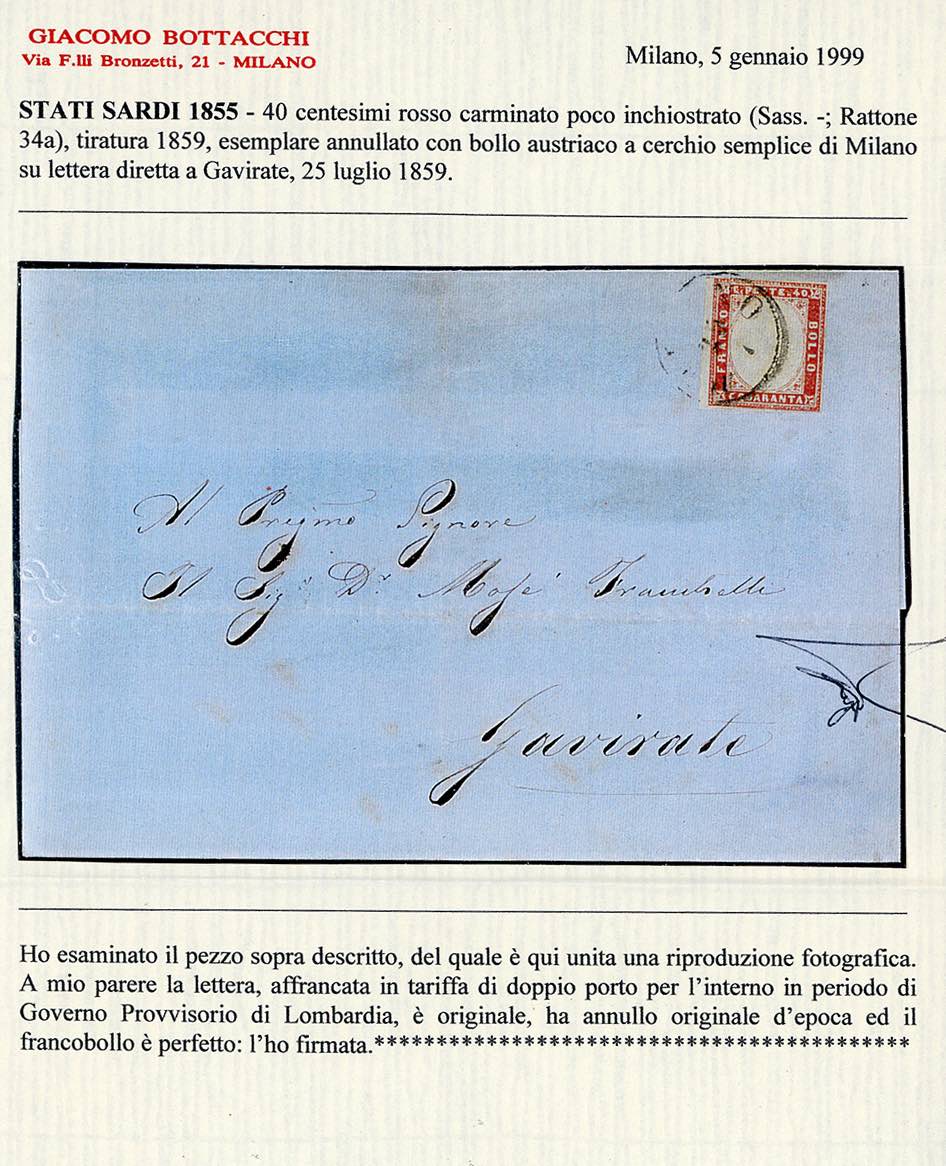 GIACOMO BOTTACCHI
Via F.lli Bronzetti, 21 - MILANO
Milano, 5 gennaio 1999
STATI SARDI 1855 - 40 centesimi rosso carminato poco inchiostrato (Sass. -; Rattone
34a), tiratura 1859, esemplare annullato con bollo austriaco a cerchio semplice di Milano
su lettera diretta a Gavirate, 25 luglio 1859.
C. POSTE. 40
FRANCO
BOLLO
QUARANTA
Al Pregmo Signore
Il Sigr. Dr. Mosé
Gavirate
Ho esaminato il pezzo sopra descritto, del quale è qui unita una riproduzione fotografica.
A mio parere la lettera, affrancata in tariffa di doppio porto per l'interno in periodo di
Governo Provvisorio di Lombardia, è originale, ha annullo originale d'epoca ed il
francobollo è perfetto: l'ho firmata.*******************************************